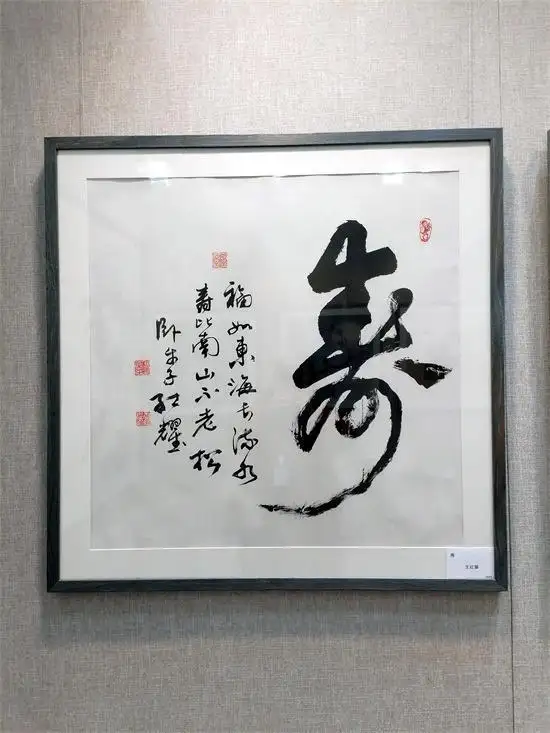 寿
福如東海长流水
寿比南山不老松
卧牛子红耀